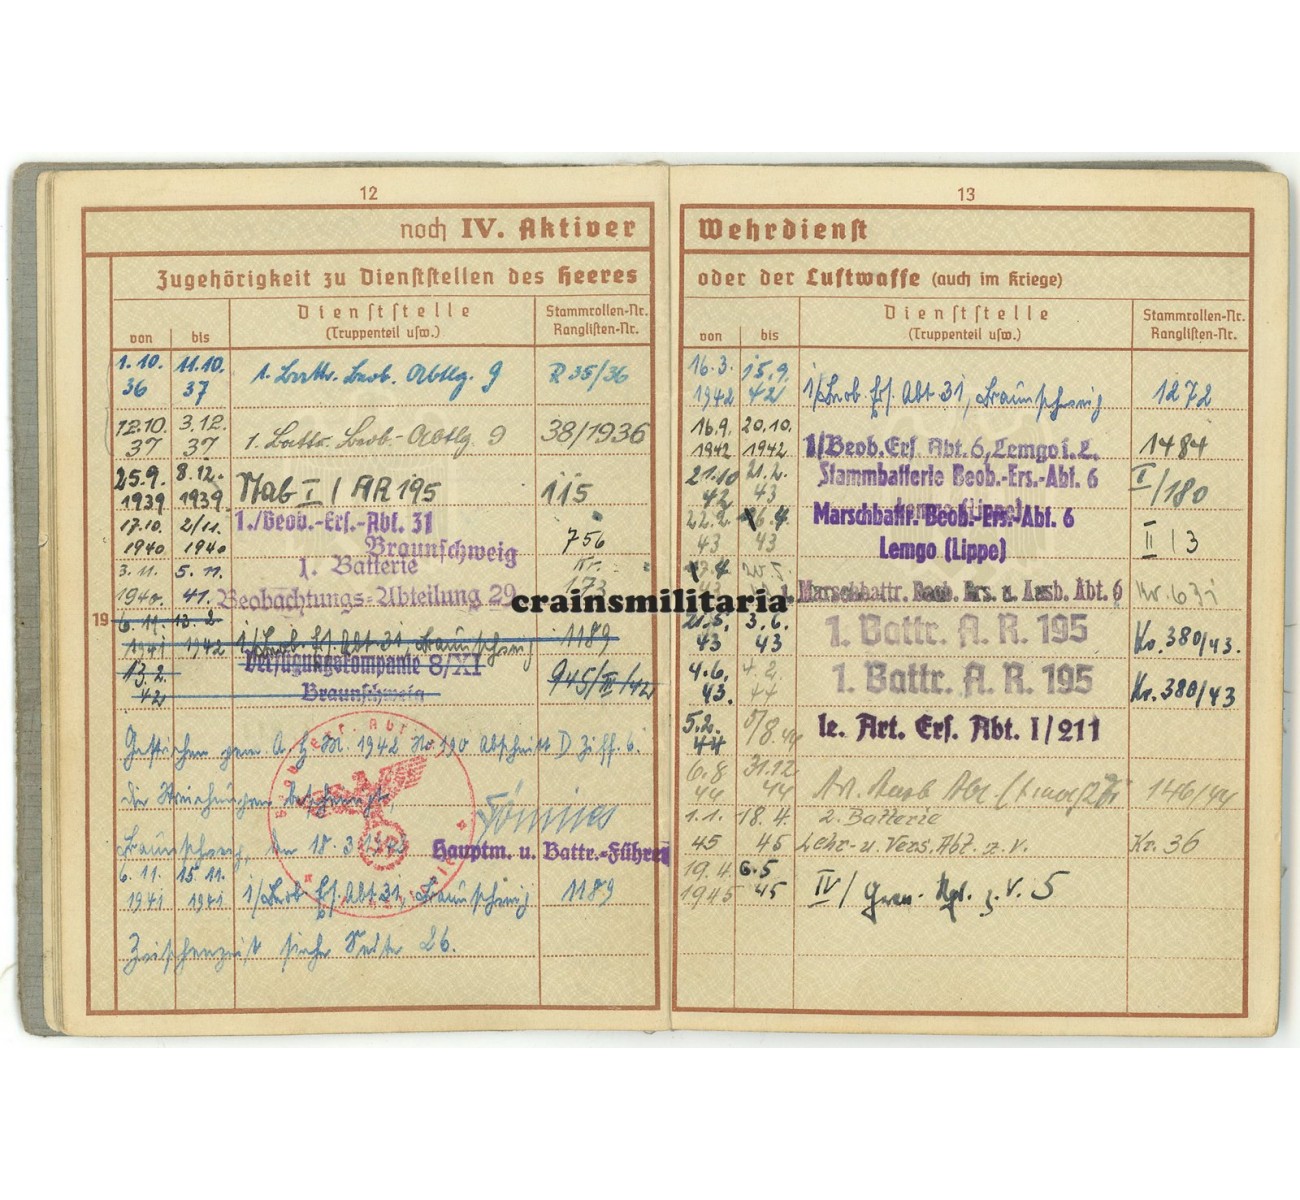 12
noch IV. Aktiver
Zugehörigkeit zu Dienststellen des Heeres
von bis
Dienststelle
(Truppenteil usw.)
Stammrollen-Nr.
Ranglisten-Nr.
1.10. 36 11.10. 37 1. Battr. Beob. Abtlg. 9 R 35/36
12.10. 37 3.12. 37 1. Battr. Beob.-Abtlg. 9 38/1936
25.9. 1939 8.12. 1939 Stab I / AR 195 115
17.10. 1940 2/11. 1940 1./Beob.-Ers.-Abt. 31
Braunschweig 756
3.11. 1940 5.11. 41. 1. Batterie
Beobachtungs-Abteilung 29 Nr. 173
19
6.11. 1941 13.2. 1942 1/Beob. Ers. Abt 31, Braunschweig 1189
13.2. 42 Verfügungskompanie 8/XI
Braunschweig 945/III/42
Gestrichen gem. A.H.M. 1942 No. Abschnitt D Ziff. 6.
die Streichungen bescheinigt,
Braunschweig, den 18.3.1942
Tönnies
Hauptm. u. Battr.-Führer
6.11. 1941 15.11. 1941 1/Beob. Ers. Abt 31, Braunschweig 1189
Zwischenzeit siehe Seite 26.
13
Wehrdienst
oder der Luftwaffe (auch im Kriege)
von bis
Dienststelle
(Truppenteil usw.)
Stammrollen-Nr.
Ranglisten-Nr.
16.3. 1942 15.9. 42 1/Beob. Ers. Abt 31, Braunschweig 1272
16.9. 1942 20.10. 1942 1/Beob. Ers. Abt. 6, Lemgo i. L. 1484
21.10 42 21.2. 43 Stammbatterie Beob.-Ers.-Abt. 6
Lemgo (Lippe) I/180
22.2. 43 6.4 43 Marschbattr. Beob.-Ers.-Abt. 6
Lemgo (Lippe) II/3
1. Marschbattr. Beob. Ers. u. Ausb. Abt. 6
21.5. 43 3.6. 43 1. Battr. A. R. 195 Kr. 380/43.
4.6. 43. 4.2. 44 1. Battr. A. R. 195 Kr. 380/43
5.2. 44 5/8. 44 le. Art. Ers. Abt. I/211
6.8. 44 31.12 44 146/44
1.1. 45 18.4. 45 2. Batterie
Lehr- u. Vers. Abt. z. V. Kr. 36
19.4. 1945 6.5 45 IV/ Gren. Rgt. z. V. 5
crainsmilitaria